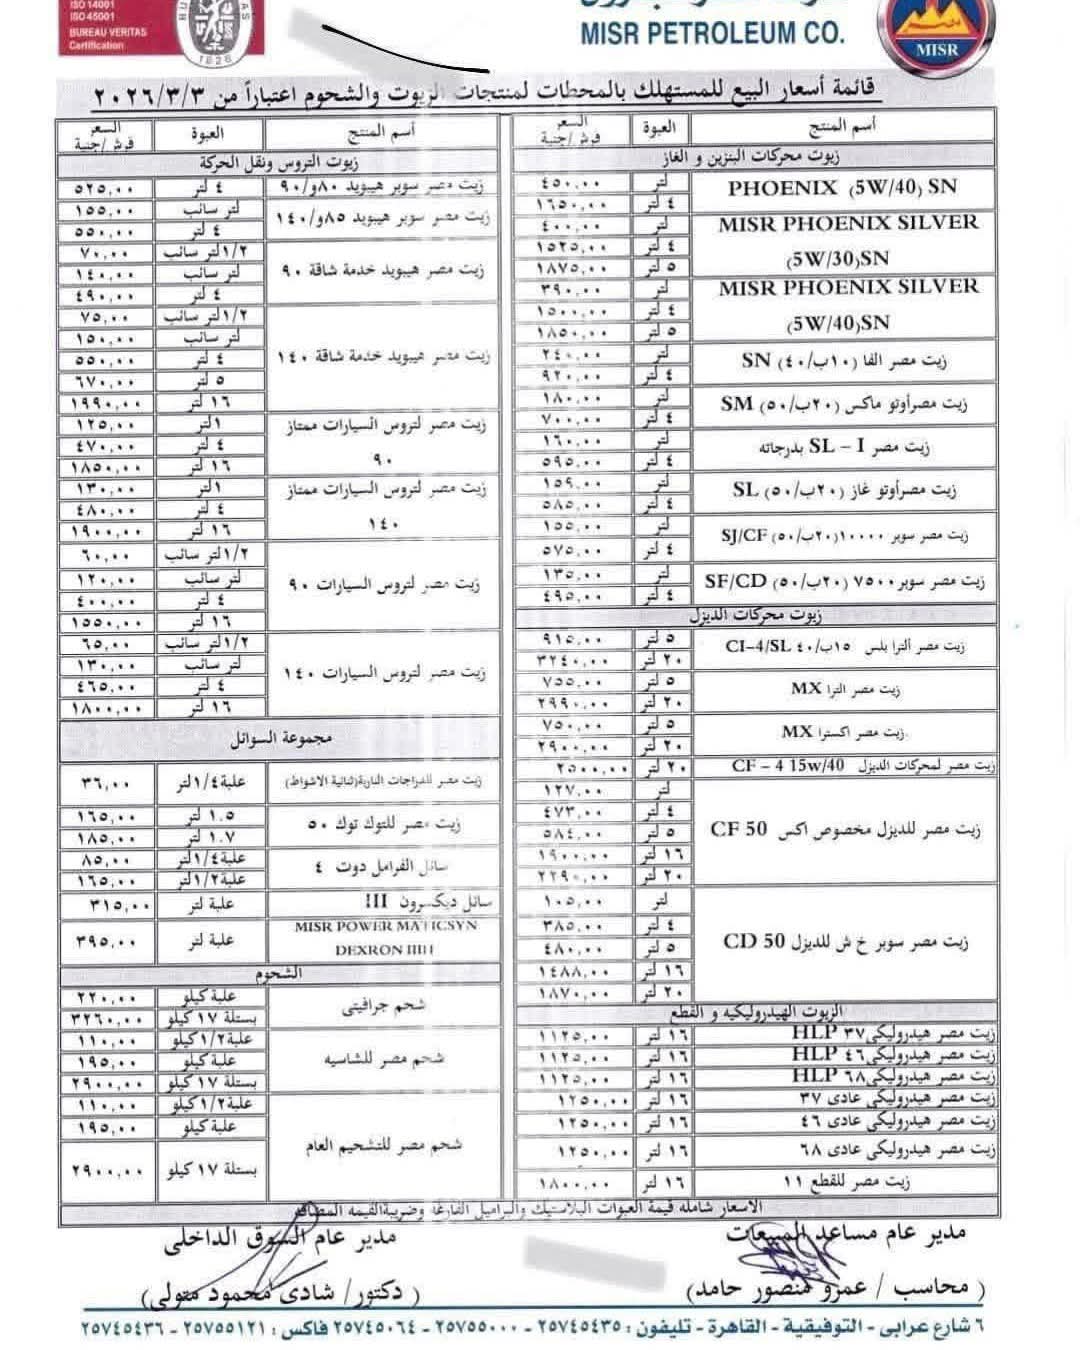 ISO 14001
ISO 45001
BUREAU VERITAS
Certification
1828
MISR PETROLEUM CO.
MISR
قائمة أسعار البيع للمستهلك بالمحطات لمنتجات الزيوت والشحوم اعتباراً من ٢٠٢٦/٣/٣
أسم المنتج العبوة السعر قرش/جنية
زيوت محركات البنزين و الغاز
PHOENIX (5W/40) SN لتر ٤٥٠,٠٠
٤ لتر ١٦٥٠,٠٠
MISR PHOENIX SILVER (5W/30)SN لتر ٤٠٠,٠٠
٤ لتر ١٥٢٥,٠٠
٥ لتر ١٨٧٥,٠٠
MISR PHOENIX SILVER (5W/40)SN لتر ٣٩٠,٠٠
٤ لتر ١٥٠٠,٠٠
٥ لتر ١٨٥٠,٠٠
زيت مصر الفا (١٠ب/٤٠) SN لتر ٢٤٠,٠٠
٤ لتر ٩٢٠,٠٠
زيت مصرأوتو ماكس (٢٠ب/٥٠) SM لتر ١٨٠,٠٠
٤ لتر ٧٠٠,٠٠
زيت مصر SL – I بدرجاته لتر ١٦٠,٠٠
٤ لتر ٥٩٥,٠٠
زيت مصرأوتو غاز (٢٠ب/٥٠) SL لتر ١٥٩,٠٠
٤ لتر ٥٨٥,٠٠
زيت مصر سوبر ١٠٠٠٠(٢٠ب/٥٠) SJ/CF لتر ١٥٥,٠٠
٤ لتر ٥٧٥,٠٠
زيت مصر سوبر ٧٥٠٠ (٢٠ب/٥٠) SF/CD لتر ١٣٥,٠٠
٤ لتر ٤٩٥,٠٠
زيوت محركات الديزل
زيت مصر ألترا بلس ١٥ب/٤٠ CI-4/SL ٥ لتر ٩١٥,٠٠
٢٠ لتر ٣٢٤٠,٠٠
زيت مصر الترا MX ٥ لتر ٧٥٥,٠٠
٢٠ لتر ٢٩٩٠,٠٠
زيت مصر اكسترا MX ٥ لتر ٧٥٠,٠٠
٢٠ لتر ٢٩٠٠,٠٠
زيت مصر لمحركات الديزل CF – 4 15w/40 ٢٠ لتر ٢٥٠٠,٠٠
زيت مصر للديزل مخصوص اكس CF 50 لتر ١٢٧,٠٠
٤ لتر ٤٧٣,٠٠
٥ لتر ٥٨٤,٠٠
١٦ لتر ١٩٠٠,٠٠
٢٠ لتر ٢٢٩٠,٠٠
زيت مصر سوبر خ ش للديزل CD 50 لتر ١٠٥,٠٠
٤ لتر ٣٨٥,٠٠
٥ لتر ٤٨٠,٠٠
١٦ لتر ١٤٨٨,٠٠
٢٠ لتر ١٨٧٠,٠٠
الزيوت الهيدروليكيه و القطع
زيت مصر هيدروليكى٣٧ HLP ١٦ لتر ١١٢٥,٠٠
زيت مصر هيدروليكى٤٦ HLP ١٦ لتر ١١٢٥,٠٠
زيت مصر هيدروليكى٦٨ HLP ١٦ لتر ١١٢٥,٠٠
زيت مصر هيدروليكى عادى ٣٧ ١٦ لتر ١٢٥٠,٠٠
زيت مصر هيدروليكى عادى ٤٦ ١٦ لتر ١٢٥٠,٠٠
زيت مصر هيدروليكى عادى ٦٨ ١٦ لتر ١٢٥٠,٠٠
زيت مصر للقطع ١١ ١٦ لتر ١٨٠٠,٠٠
أسم المنتج العبوة السعر قرش/جنية
زيوت التروس ونقل الحركة
زيت مصر سوبر هيبويد ٨٠و/٩٠ ٤ لتر ٥٢٥,٠٠
زيت مصر سوبر هيبويد ٨٥و/١٤٠ لتر سائب ١٥٥,٠٠
٤ لتر ٥٥٠,٠٠
زيت مصر هيبويد خدمة شاقة ٩٠ ١/٢لتر سائب ٧٠,٠٠
لتر سائب ١٤٠,٠٠
٤ لتر ٤٩٠,٠٠
زيت مصر هيبويد خدمة شاقة ١٤٠ ١/٢لتر سائب ٧٥,٠٠
لتر سائب ١٥٠,٠٠
٤ لتر ٥٥٠,٠٠
٥ لتر ٦٧٠,٠٠
١٦ لتر ١٩٩٠,٠٠
زيت مصر لتروس السيارات ممتاز ٩٠ ١لتر ١٢٥,٠٠
٤ لتر ٤٧٠,٠٠
١٦ لتر ١٨٥٠,٠٠
زيت مصر لتروس السيارات ممتاز ١٤٠ ١لتر ١٣٠,٠٠
٤ لتر ٤٨٠,٠٠
١٦ لتر ١٩٠٠,٠٠
زيت مصر لتروس السيارات ٩٠ ١/٢لتر سائب ٦٠,٠٠
لتر سائب ١٢٠,٠٠
٤ لتر ٤٠٠,٠٠
١٦ لتر ١٥٥٠,٠٠
زيت مصر لتروس السيارات ١٤٠ ١/٢لتر سائب ٦٥,٠٠
لتر سائب ١٣٠,٠٠
٤ لتر ٤٦٥,٠٠
١٦ لتر ١٨٠٠,٠٠
مجموعة السوائل
زيت مصر للدراجات النارية(ثنائية الاشواط) علبة١/٤لتر ٣٦,٠٠
زيت مصر للتوك توك ٥٠ ١.٥ لتر ١٦٥,٠٠
١.٧ لتر ١٨٥,٠٠
سائل الفرامل دوت ٤ علبة١/٤لتر ٨٥,٠٠
علبة١/٢لتر ١٦٥,٠٠
سائل ديكسرون III علبة لتر ٣١٥,٠٠
MISR POWER MATICSYN DEXRON IIIH علبة لتر ٣٩٥,٠٠
الشحوم
شحم جرافيتى علبة كيلو ٢٢٠,٠٠
بستلة ١٧ كيلو ٣٢٦٠,٠٠
شحم مصر للشاسيه علبة١/٢كيلو ١١٠,٠٠
علبة كيلو ١٩٥,٠٠
بستلة ١٧ كيلو ٢٩٠٠,٠٠
شحم مصر للتشحيم العام علبة١/٢كيلو ١١٠,٠٠
علبة كيلو ١٩٥,٠٠
بستلة ١٧ كيلو ٢٩٠٠,٠٠
الاسعار شامله قيمة العبوات البلاستيك والبراميل الفارغة وضريبةالقيمه المضافه
مدير عام مساعد المبيعات
( محاسب / عمرو منصور حامد)
مدير عام السوق الداخلى
( دكتور/ شادى محمود متولى)
٦ شارع عرابى - التوفيقية - القاهرة - تليفون : ٢٥٧٤٥٤٣٥ - ٢٥٧٥٥٠٠٠ - ٢٥٧٤٥٠٦٤ فاكس : ٢٥٧٥٥١٢١ - ٢٥٧٤٥٤٣٦